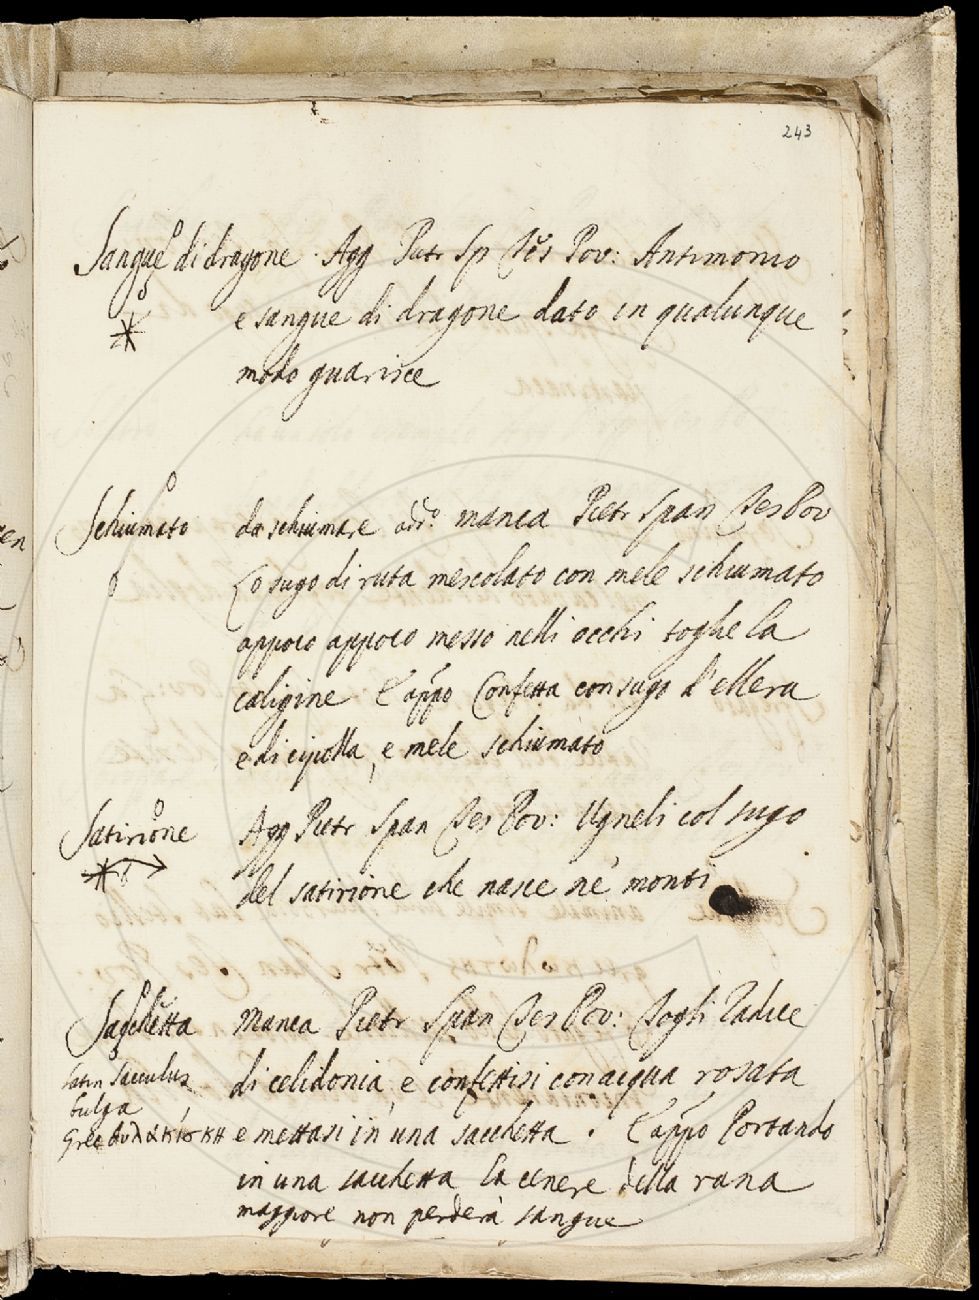 243
Sangue di dragone Agg Pietr Sp Tes Pov: Antimonio
e sangue di dragone dato in qualunque
modo guarisce
Schiumato da schiumare add.o manca Pietr Span Tes Pov
Lo sugo di ruta mescolato con mele schiumato
appoco appoco messo nelli occhi toglie la
caligine E app.o Confetta con sugo d'ellera
e di cipolla, e mele schiumato
Satirione Agg Pietr Span Tes Pov: Ugneli col sugo
del satirione che nasce ne' monti
Sacchetta manca Pietr Span Tes Pov: Togli radice
latin sacculus di celidonia, e confettisi con acqua rosata
bulga
Grec θυλάκισκη e mettasi in una sacchetta. E app.o Portando
in una sacchetta la cenere della rana
maggiore non perderà sangue